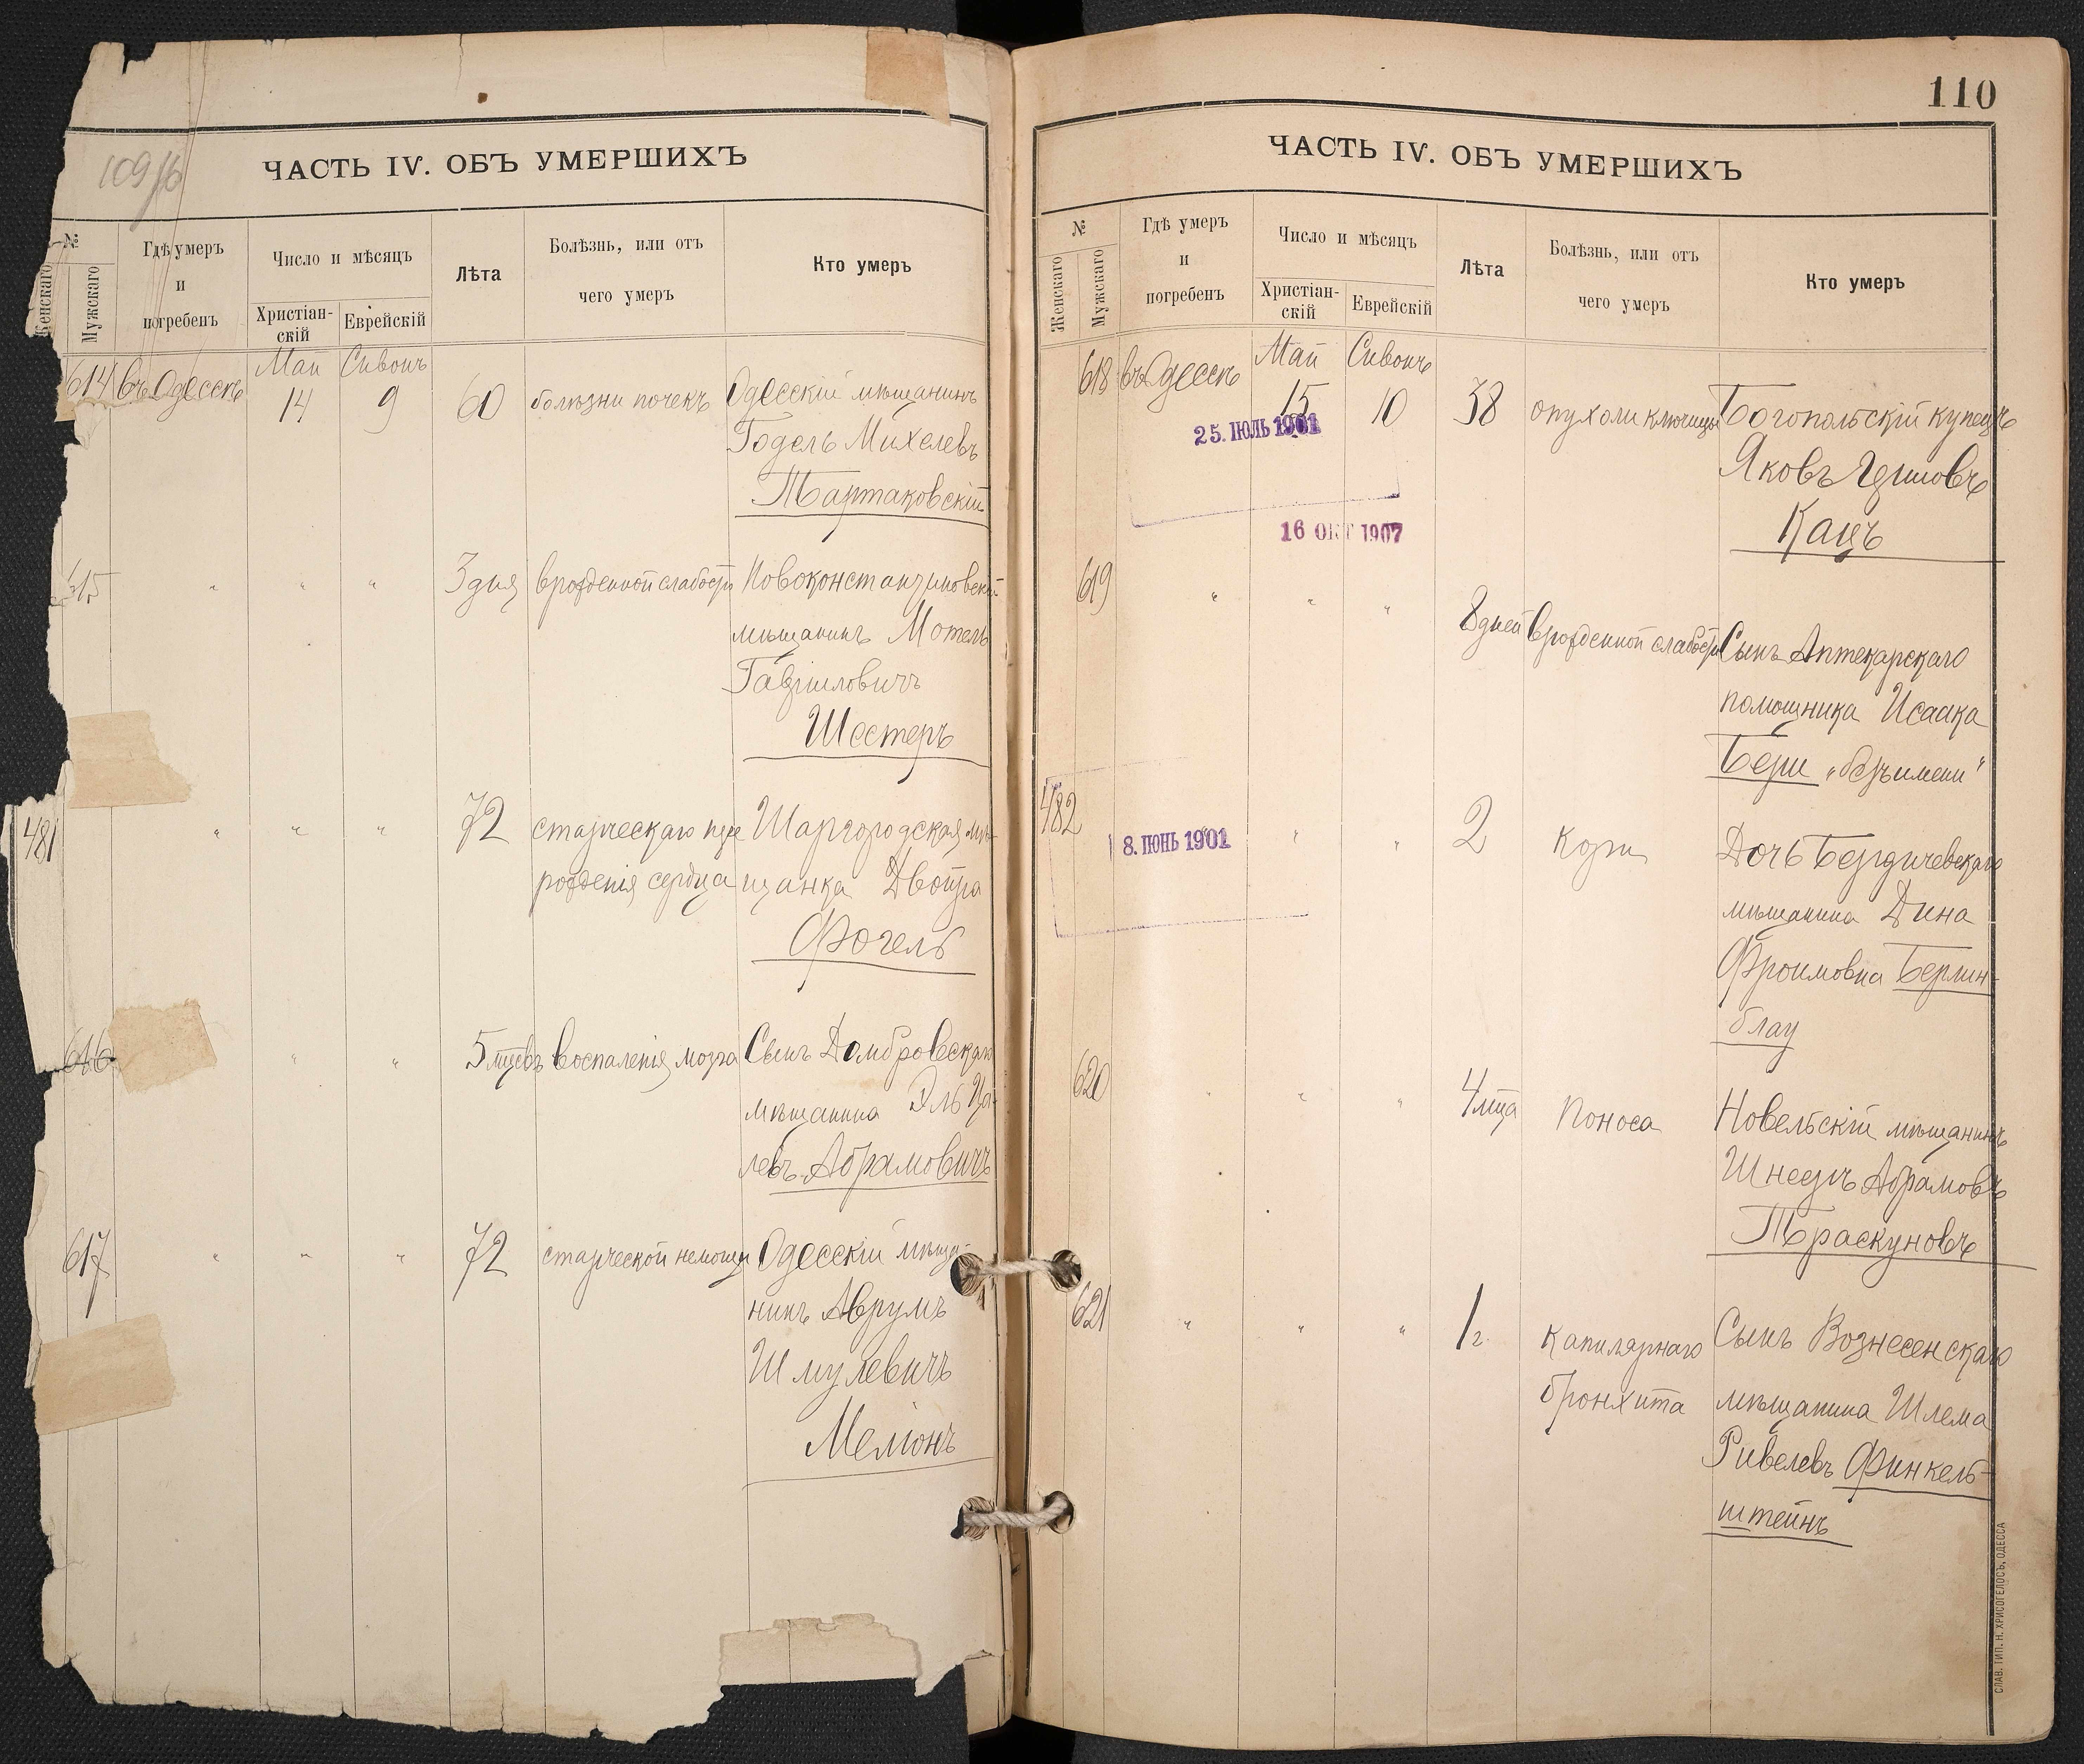 109/16
ЧАСТЬ IV. ОБЪ УМЕРШИХЪ
№
Женскаго
Мужскаго
Гдѣ умеръ
и
погребенъ
Число и мѣсяцъ
Христіан-
скій
Еврейскій
Лѣта
Болѣзнь, или отъ
чего умеръ
Кто умеръ
Май Сивонъ
614 въ Одессѣ 14 9 60 болѣзни почекъ Одесскій мѣщанинъ
Годель Михелевъ
Тартаковскій
615 " " " 3 дня врожденной слабости Новоконстантиновскій
мѣщанинъ Мотель
Гавріиловичъ
Шестеръ
481 " " " 72 старческаго пере Шаргородская мѣ-
рожденія сердца щанка Двойра
Фогель
616 " " 5 мцевъ воспаленія мозга Сынъ Домбровскаго
мѣщанина Эль Ца-
левъ Абрамовичъ
617 " " " 72 старческой немощи Одесскій мѣща-
нинъ Аврумъ
Шмулевичъ
Меліонъ
110
ЧАСТЬ IV. ОБЪ УМЕРШИХЪ
№
Женскаго
Мужскаго
Гдѣ умеръ
и
погребенъ
Число и мѣсяцъ
Христіан-
скій
Еврейскій
Лѣта
Болѣзнь, или отъ
чего умеръ
Кто умеръ
Май Сивонъ
618 въ Одессѣ 15 10 38 опухоли ключицы Богопольскій купецъ
25. ІЮЛЬ 1901
Яковъ
Кацъ
16 ОКТ 1907
619 " " " 8 дней врожденной слабости Сынъ Аптекарскаго
помощника Исаака
Бери „безъимени"
482 " " 2 Кори Дочь Бердичевскаго
8. ІЮНЬ 1901
мѣщанина Дина
Фроимовна Берлин-
блау
620 " " " 4 мца Поноса Новельскій мѣщанинъ
Шнееръ Абрамовъ
Траскуновъ
621 " " " 1 г. Капилярнаго Сынъ Вознесенскаго
бронхита мѣщанина Шлема
Ривелевъ Финкель-
штейнъ
СЛАВ. ТИП. Н. ХРИСОГЕЛОСЪ, ОДЕССА